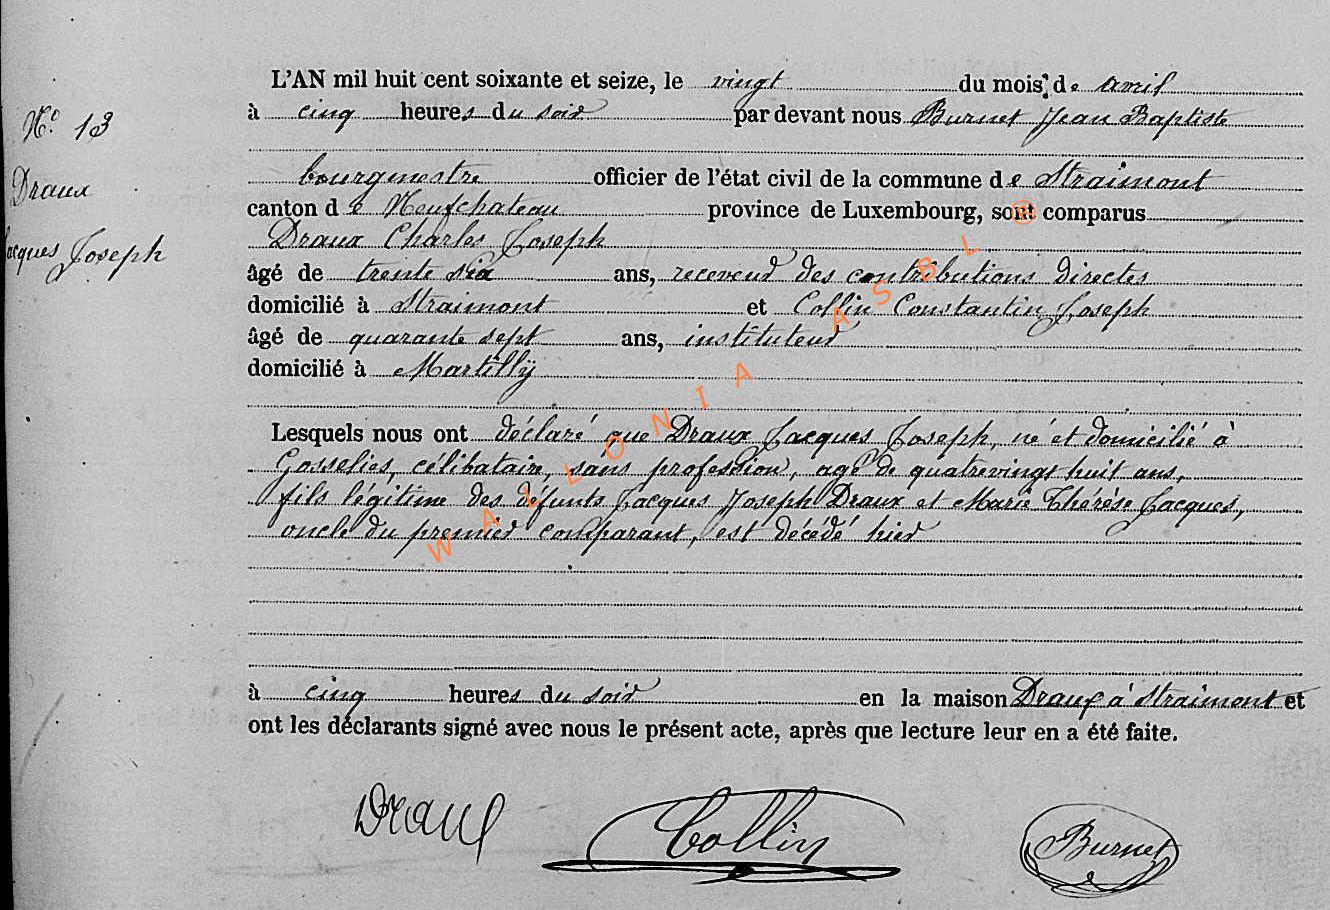 N.o 13
Draux
Jacques Joseph
L'AN mil huit cent soixante et seize, le vingt du mois de avril
à cinq heures du soir par devant nous Burnet Jean Baptiste
bourgmestre officier de l'état civil de la commune de Straimont
canton de Neufchateau province de Luxembourg, sont comparus
Draux Charles Joseph
âgé de trente six ans, receveur des contributions directes
domicilié à Straimont et Collin Constantin Joseph
âgé de quarante sept ans, instituteur
domicilié à Martilly
Lesquels nous ont déclaré que Draux Jacques Joseph, né et domicilié à
Gosselies, célibataire, sans profession, agé de quatrevingt huit ans,
fils légitime des défunts Jacques Joseph Draux et Marie Thérèse Jacques,
oncle du premier comparant, est décédé hier
à cinq heures du soir en la maison Draux à Straimont et
ont les déclarants signé avec nous le présent acte, après que lecture leur en a été faite.
Draux Collin Burnet
WALLONIA ASBL ®